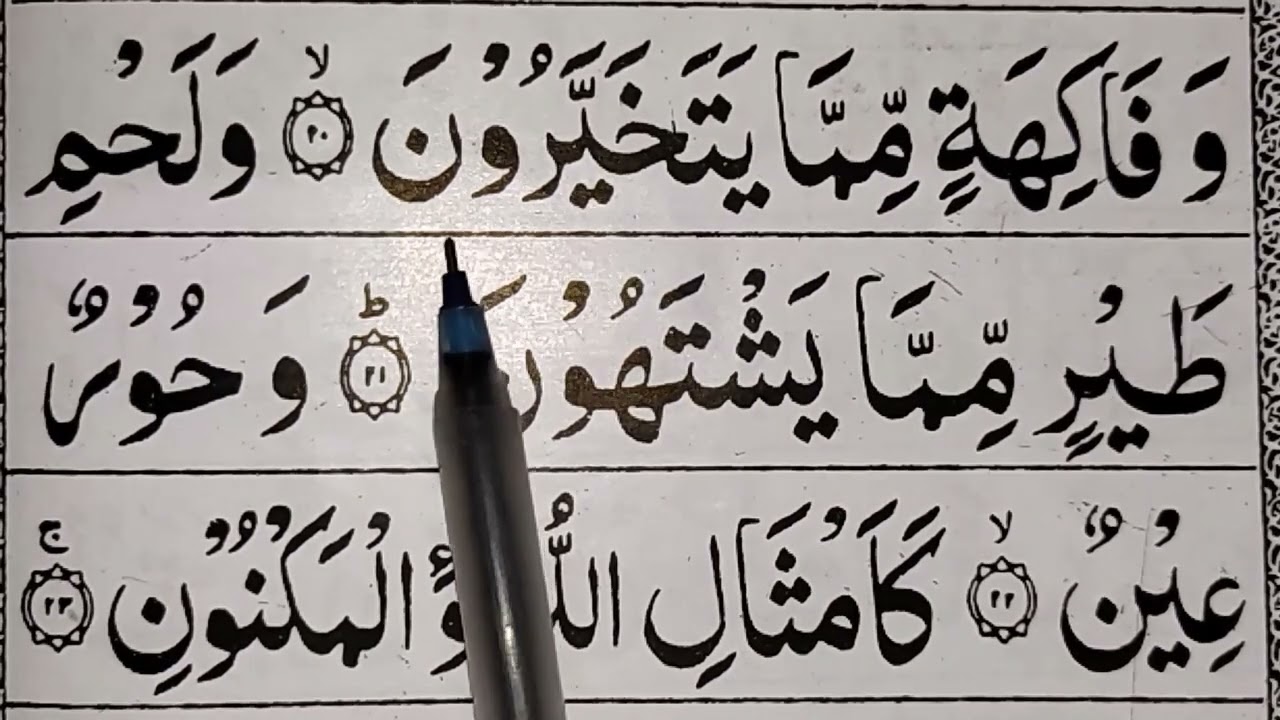 وَفَاكِهَةٍ مِّمَّا يَتَخَيَّرُوْنَ ۙ‏﴿۲۰﴾ وَلَحْمِ
طَيْرٍ مِّمَّا يَشْتَهُوْنَ ؕ‏﴿۲۱﴾ وَحُوْرٌ
عِيْنٌ ۙ‏﴿۲۲﴾ كَاَمْثَالِ اللُّؤْلُؤِ الْمَكْنُوْنِ ۚ‏﴿۲۳﴾